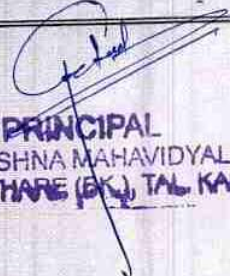 PRINCIPAL
SHNA MAHAVIDYAL
HARE (BK.), TAL. KA